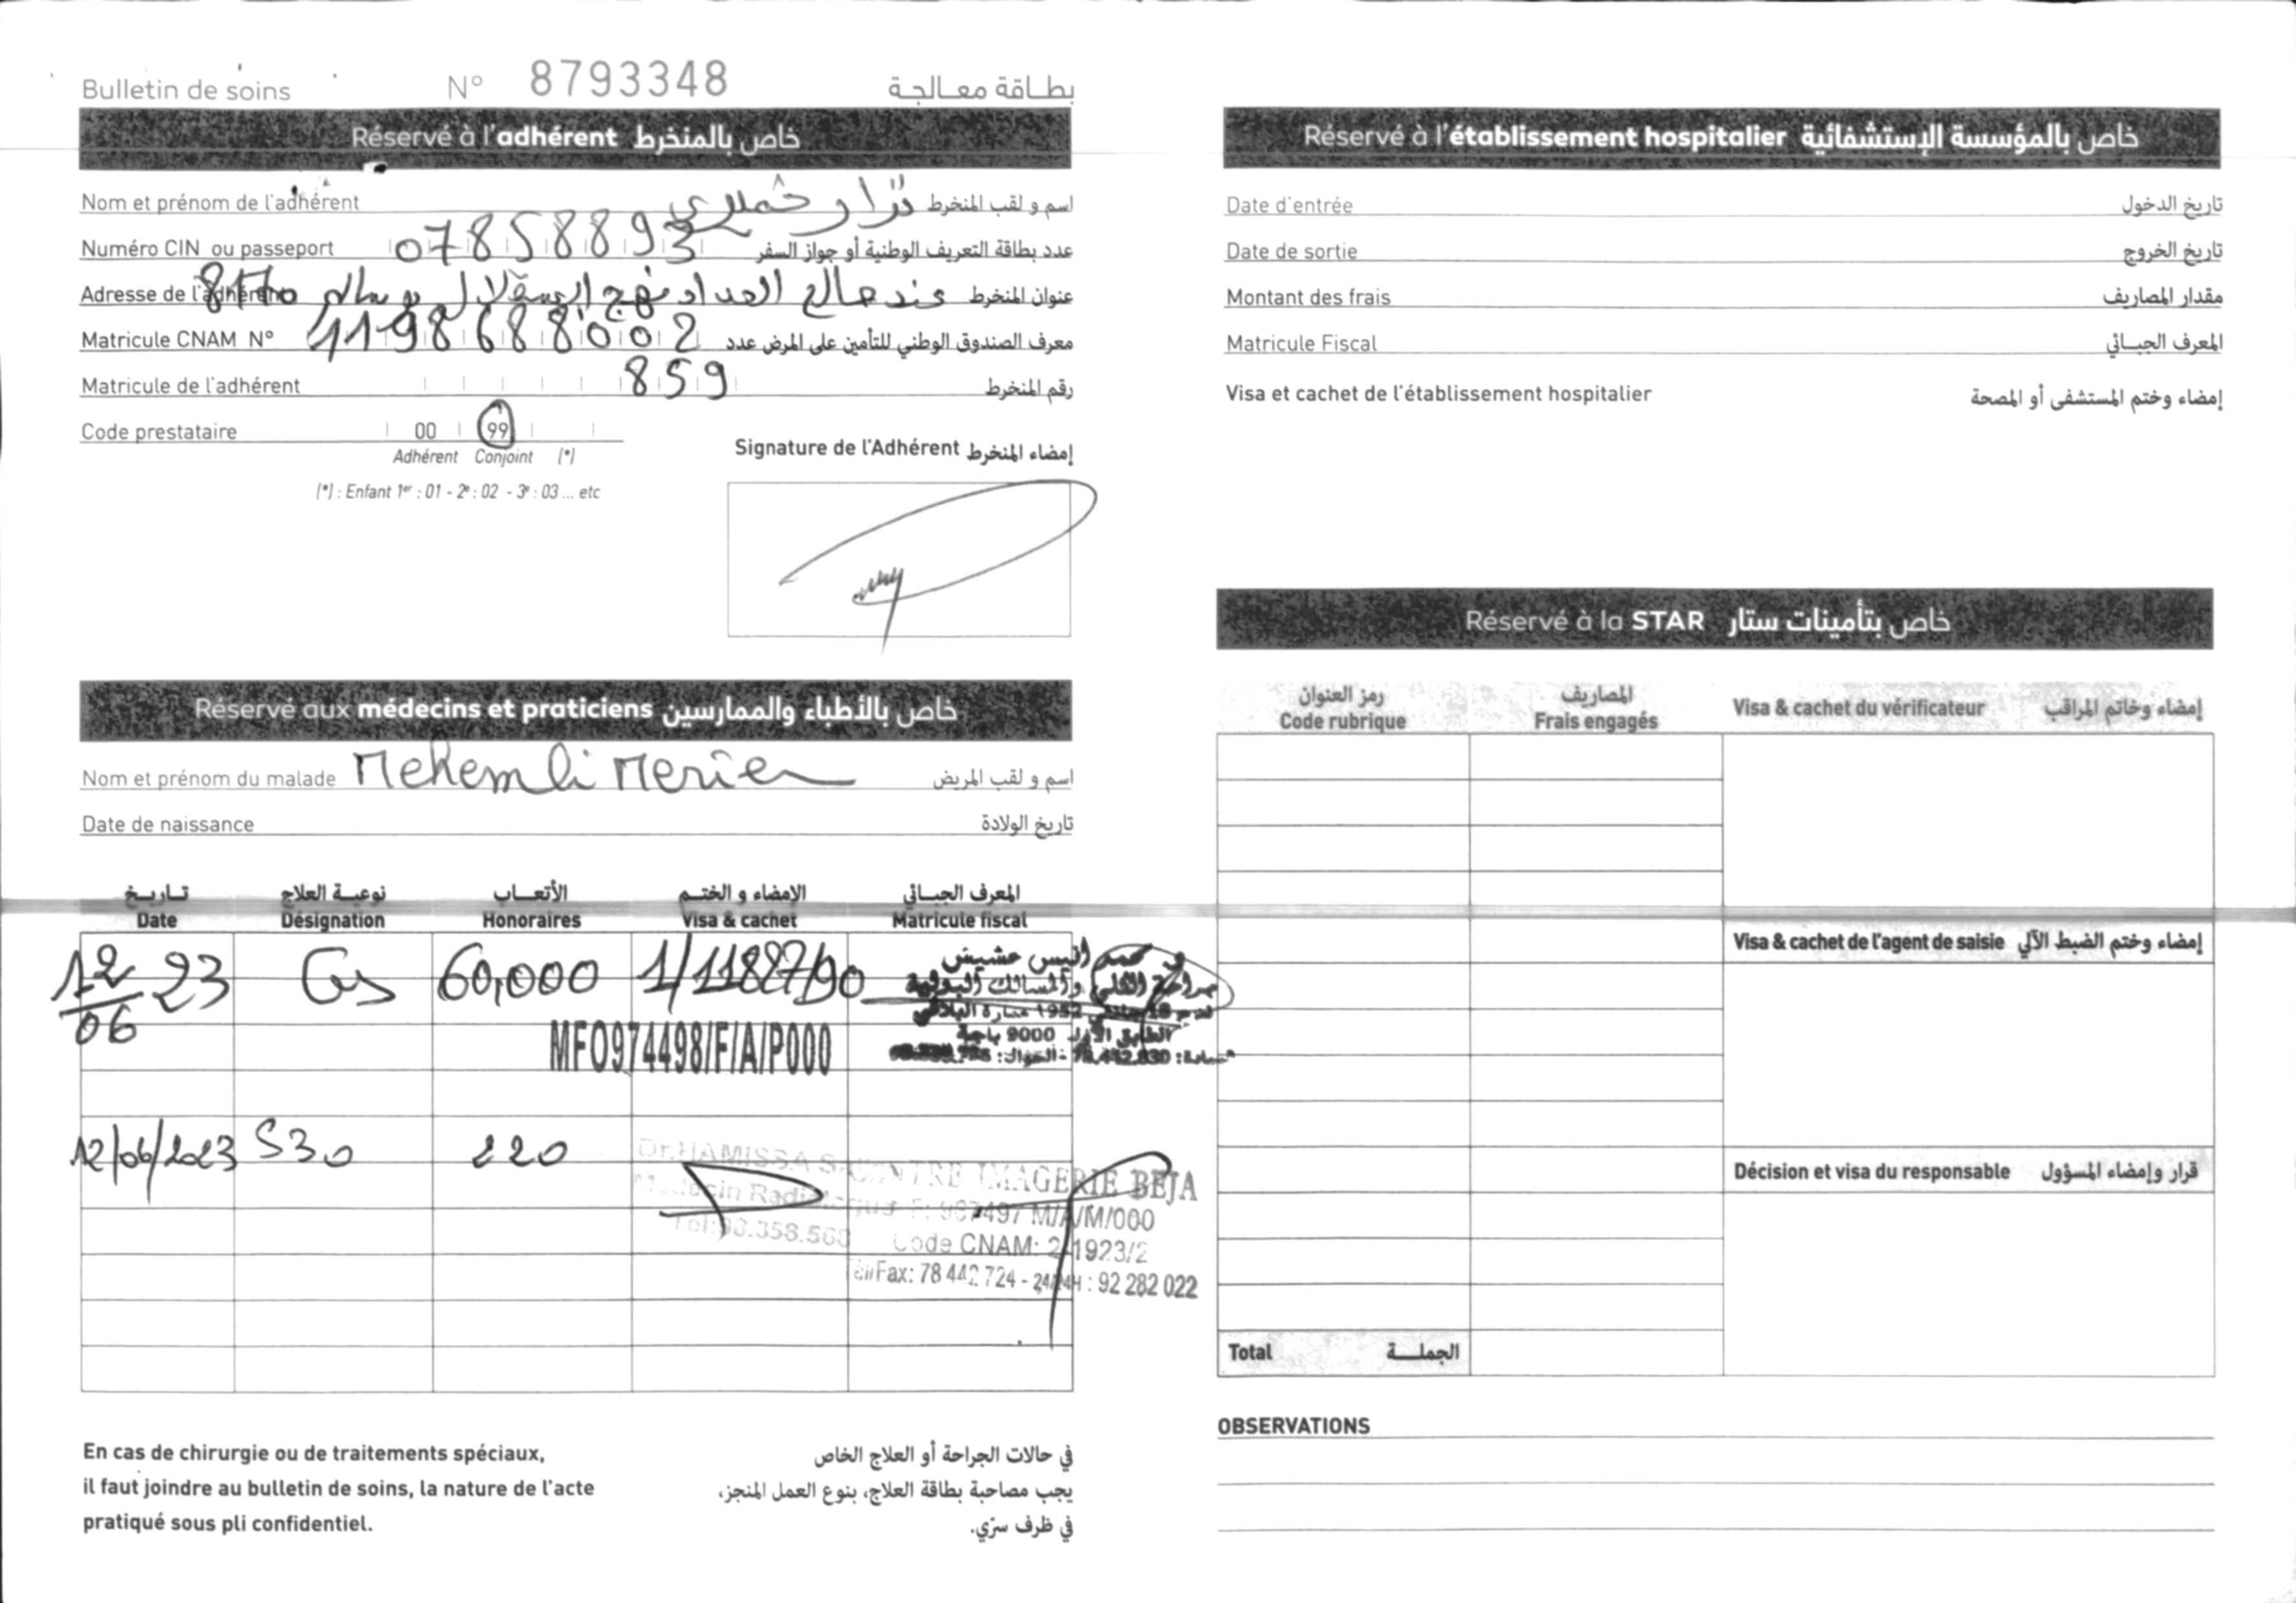 Bulletin de soins N° 8793348 بطاقة معالجة
Réservé à l'adhérent خاص بالمنخرط
Nom et prénom de l'adhérent نزار خميري اسم و لقب المنخرط
Numéro CIN ou passeport 07858893 عدد بطاقة التعريف الوطنية أو جواز السفر
Adresse de l'adhérent 8170 عند صالح الحداد نهج الاستقلال بوسالم عنوان المنخرط
Matricule CNAM N° 119868800 2 معرف الصندوق الوطني للتأمين على المرض عدد
Matricule de l'adhérent 859 رقم المنخرط
Code prestataire 00 99
Adhérent Conjoint (*)
(*) : Enfant 1er : 01 - 2e : 02 - 3e : 03 ... etc
Signature de l'Adhérent إمضاء المنخرط
Réservé aux médecins et praticiens خاص بالأطباء والممارسين
Nom et prénom du malade Mehemli Merien اسم و لقب المريض
Date de naissance تاريخ الولادة
تـاريـخ نوعيـة العلاج الأتعـاب الإمضاء و الختـم المعرف الجبـائي
Date Désignation Honoraires Visa & cachet Matricule fiscal
12/06 23 Cs 60,000 1/11887/90
MF0974498/F/A/P000
الطابق الأول 9000 باجة
12/06/2023 S30 220
Dr.HAMISSA
CENTRE IMAGERIE BEJA
Médecin Radiologue
M/A/M/000
Code CNAM: 2/1923/2
Tél/Fax: 78 442 724 - 24/24H : 92 282 022
En cas de chirurgie ou de traitements spéciaux,
il faut joindre au bulletin de soins, la nature de l'acte
pratiqué sous pli confidentiel.
في حالات الجراحة أو العلاج الخاص
يجب مصاحبة بطاقة العلاج، بنوع العمل المنجز،
في ظرف سرّي.
Réservé à l'établissement hospitalier خاص بالمؤسسة الإستشفائية
Date d'entrée تاريخ الدخول
Date de sortie تاريخ الخروج
Montant des frais مقدار المصاريف
Matricule Fiscal المعرف الجبـائي
Visa et cachet de l'établissement hospitalier إمضاء وختم المستشفى أو المصحة
Réservé à la STAR خاص بتأمينات ستار
رمز العنوان المصاريف
Code rubrique Frais engagés Visa & cachet du vérificateur إمضاء وخاتم المراقب
Visa & cachet de l'agent de saisie إمضاء وختم الضبط الآلي
Décision et visa du responsable قرار وإمضاء المسؤول
Total الجملـة
OBSERVATIONS